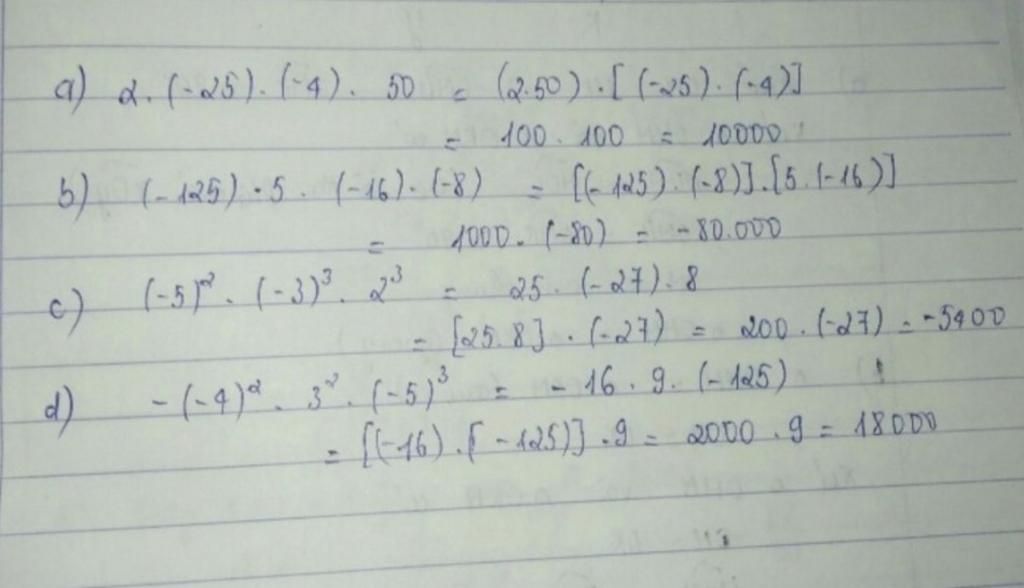 a) 2. (-25). (-4). 50 = (2.50).[(-25).(-4)]
= 100. 100 = 10000
b) (-125).5. (-16).(-8) = [(-125).(-8)].[5.(-16)]
= 1000.(-80) = -80.000
c) (-5)². (-3)³. 2³ = 25. (-27).8
= [25.8].(-27) = 200.(-27) = -5400
d) -(-4)². 3². (-5)³ = - 16. 9. (-125)
= [(-16).(-125)].9 = 2000.9 = 18000